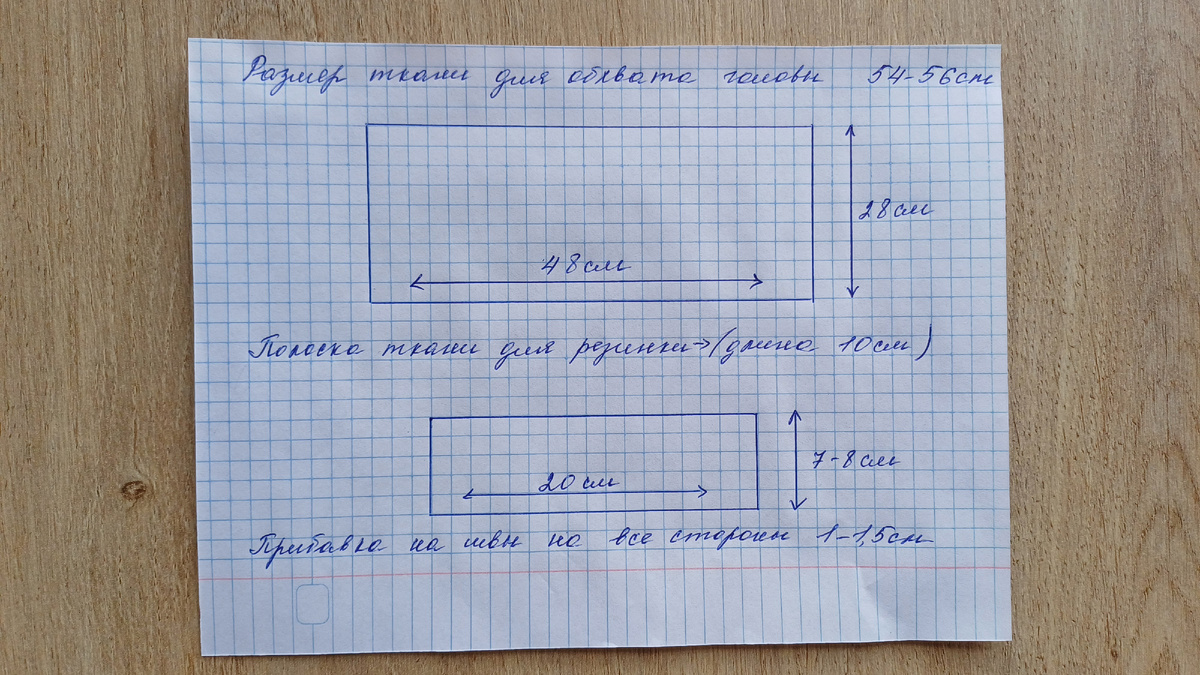 Размер ткани для обхвата головы 54-56см
28см
48см
Полоска ткани для резинки→(длина 10см)
7-8см
20см
Прибавка на швы на все стороны 1-1,5см